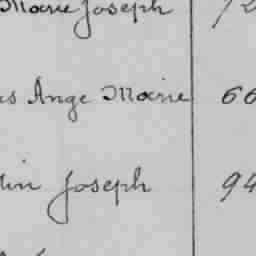 Marie Joseph 72
as Ange Marie 66
tin Joseph 94